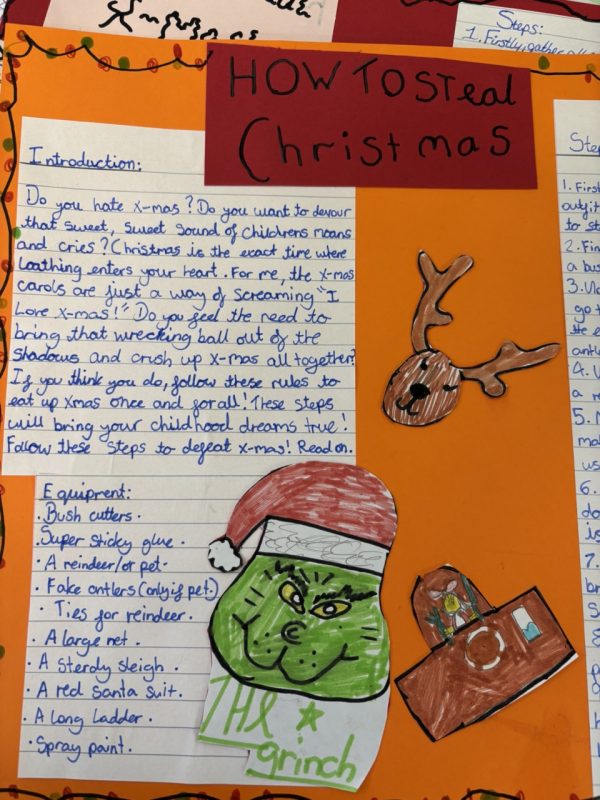 Steps:
1. Firstly, gather all
HOW TO STeal
Christmas
Introduction:
Do you hate x-mas? Do you want to devour
that sweet, sweet sound of childrens moans
and cries? Christmas is the exact time where
loathing enters your heart. For me, the x-mas
carols are just a way of screaming "I
Love x-mas!" Do you feel the need to
bring that wrecking ball out of the
shadows and crush up x-mas all together?
If you think you do, follow these rules to
eat up xmas once and for all! These steps
will bring your childhood dreams true!
Follow these steps to defeat x-mas! Read on.
Equipment:
· Bush cutters.
· Super sticky glue.
· A reindeer/or pet.
· Fake antlers (only if pet.)
· Ties for reindeer.
· A large net.
· A sterdy sleigh.
· A red santa suit.
· A long ladder.
· Spray paint.
THE
grinch
1. First
outfit
to st
2. Fin
a bus
3.
go t
the e
antl
4.
a re
5.
mak
us
6.
do
is
7.
br